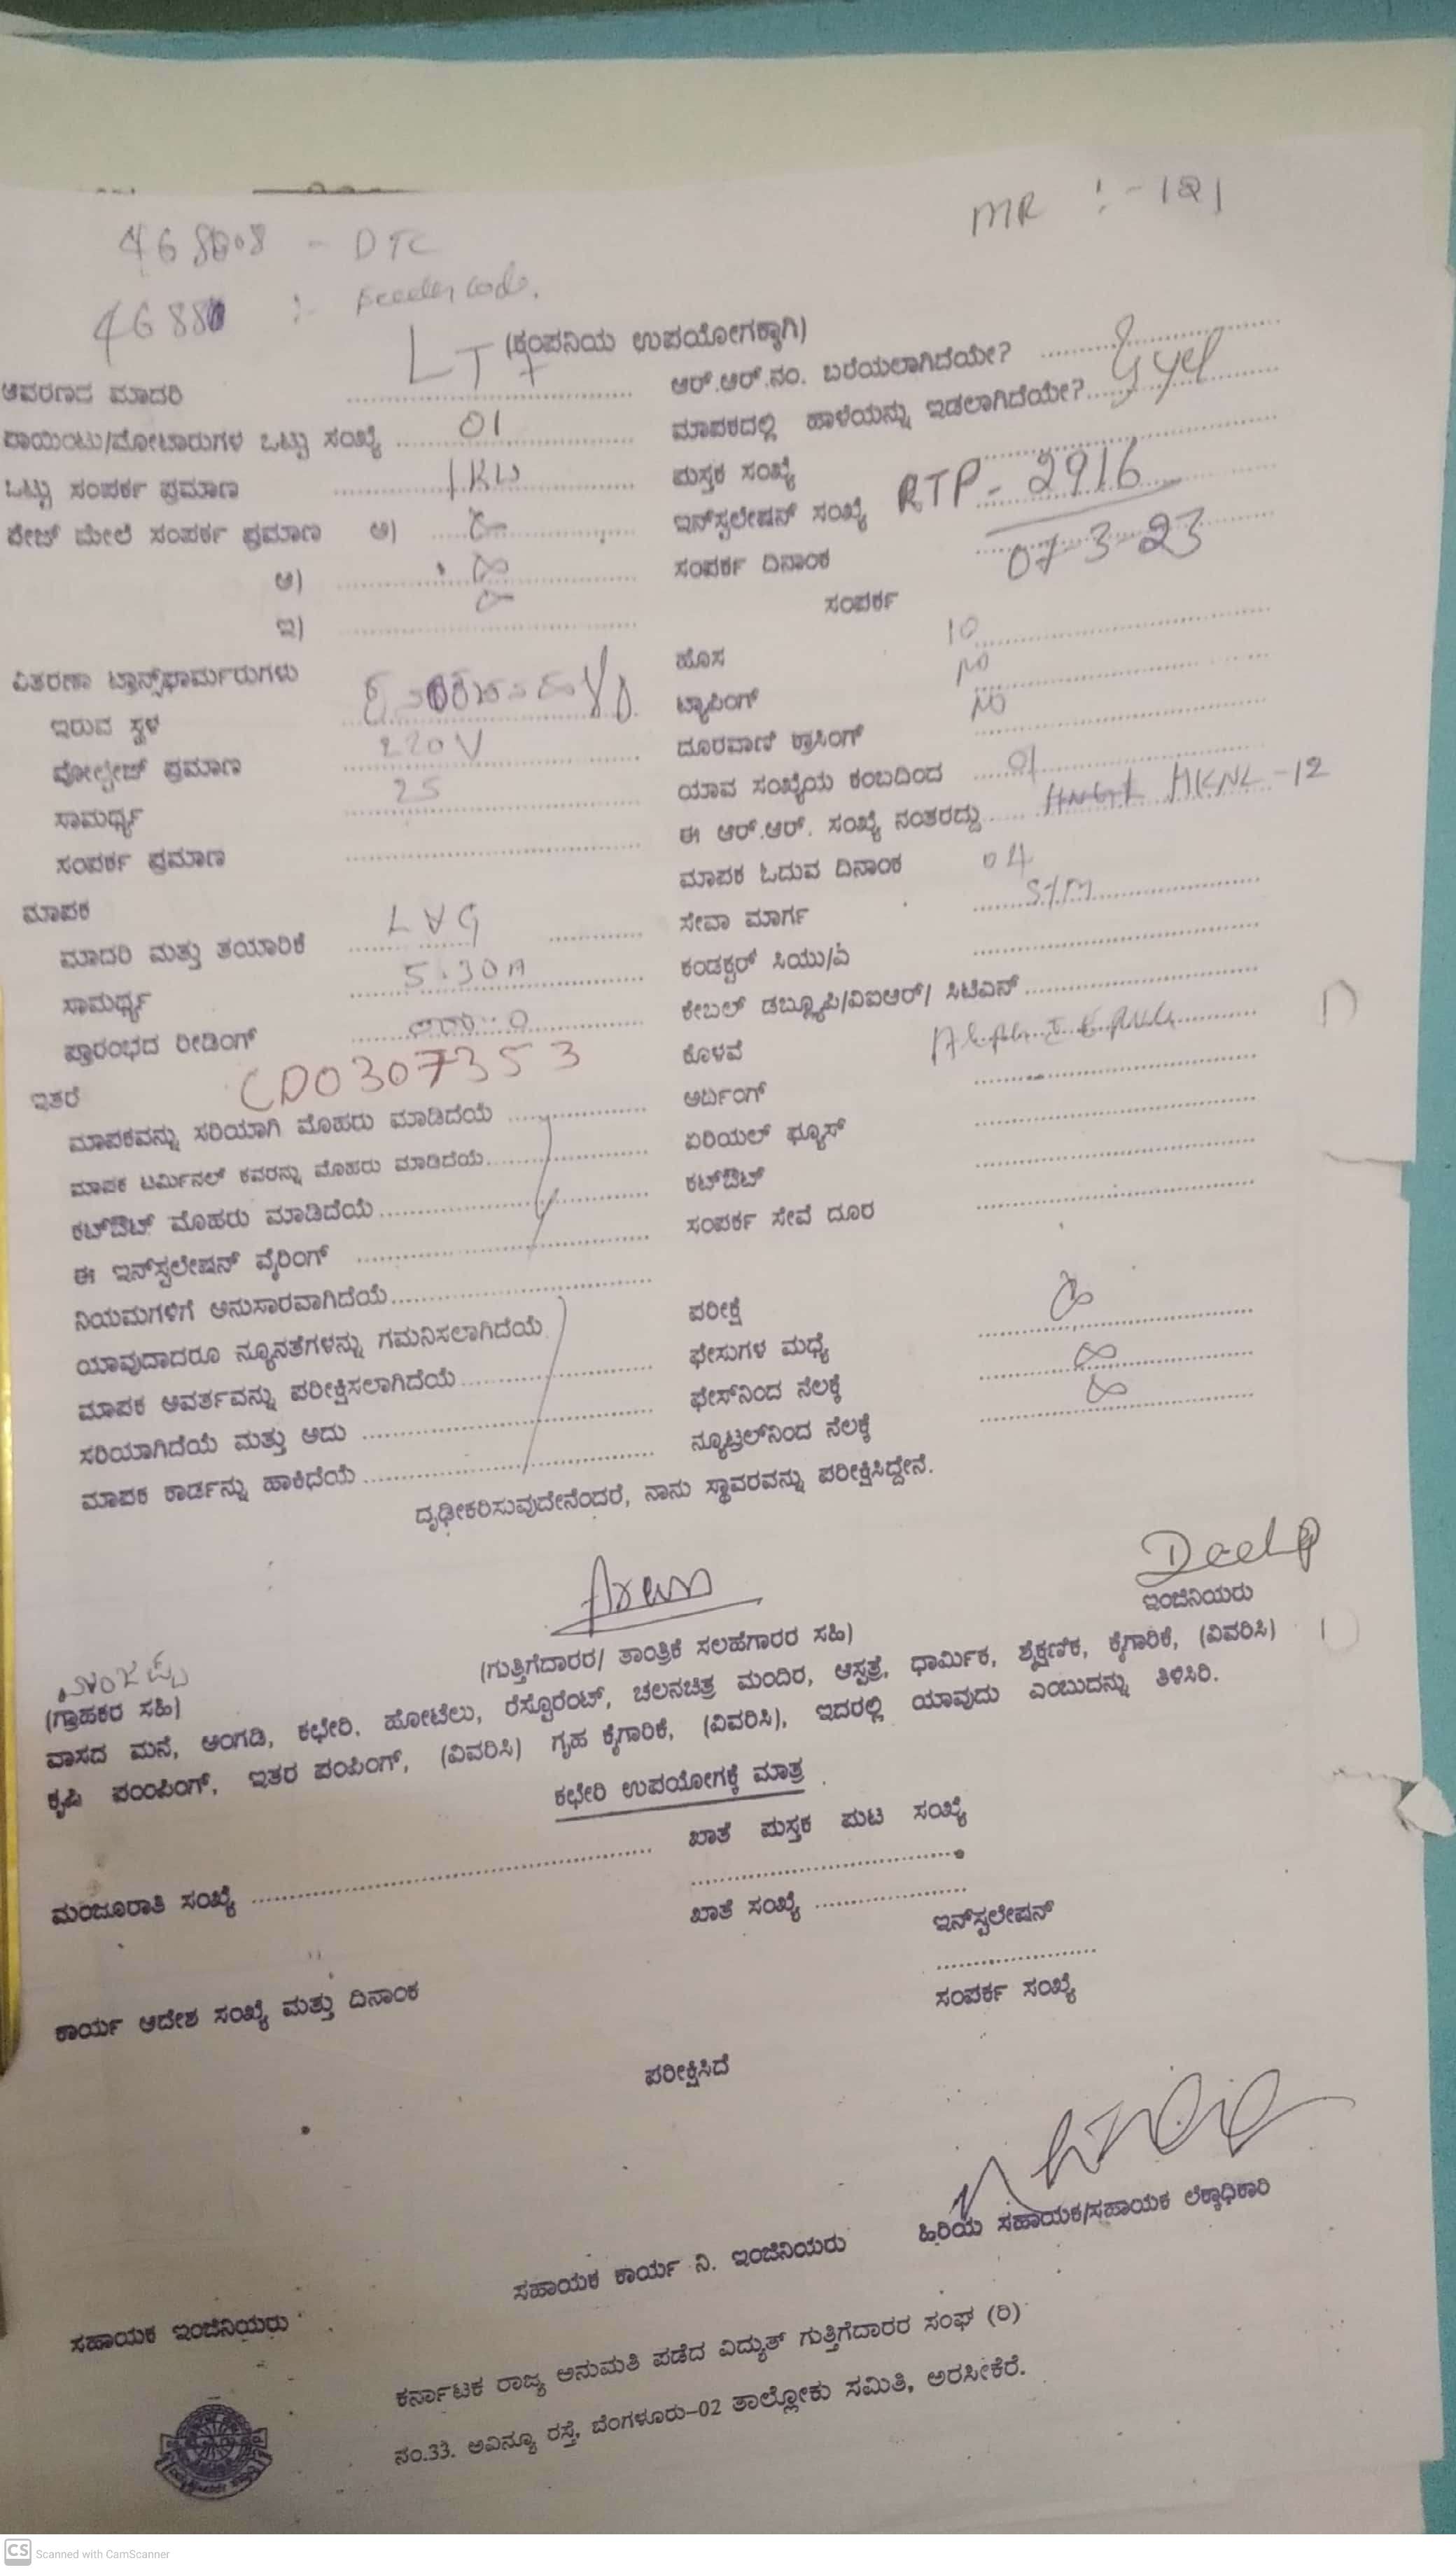 MR :- 121
- DTC
:- Feeder code.
(ಕಂಪನಿಯ ಉಪಯೋಗಕ್ಕಾಗಿ)
ಆವರಣದ ಮಾದರಿ LT7
ಆರ್.ಆರ್.ನಂ. ಬರೆಯಲಾಗಿದೆಯೇ?
ಪಾಯಿಂಟು/ಮೋಟಾರುಗಳ ಒಟ್ಟು ಸಂಖ್ಯೆ 01
ಮಾಪಕದಲ್ಲಿ ಹಾಳೆಯನ್ನು ಇಡಲಾಗಿದೆಯೇ?
ಒಟ್ಟು ಸಂಪರ್ಕ ಪ್ರಮಾಣ 1KW
ಪುಸ್ತಕ ಸಂಖ್ಯೆ
ಪೇಜ್ ಮೇಲೆ ಸಂಪರ್ಕ ಪ್ರಮಾಣ ಅ)
ಇನ್‌ಸ್ಟಲೇಷನ್ ಸಂಖ್ಯೆ RTP- 2916
ಆ)
ಸಂಪರ್ಕ ದಿನಾಂಕ 07-3-23
ಇ)
ಸಂಪರ್ಕ
ವಿತರಣಾ ಟ್ರಾನ್ಸ್‌ಫಾರ್ಮರುಗಳು
ಹೊಸ 10
ಇರುವ ಸ್ಥಳ
ಟ್ಯಾಪಿಂಗ್ NO
ವೋಲ್ಟೇಜ್ ಪ್ರಮಾಣ 220V
ದೂರವಾಣಿ ಕ್ರಾಸಿಂಗ್ NO
ಸಾಮರ್ಥ್ಯ 25
ಯಾವ ಸಂಖ್ಯೆಯ ಕಂಬದಿಂದ 01
ಸಂಪರ್ಕ ಪ್ರಮಾಣ
ಈ ಆರ್.ಆರ್. ಸಂಖ್ಯೆ ನಂತರದ್ದು HKNL -12
ಮಾಪಕ
ಮಾಪಕ ಓದುವ ದಿನಾಂಕ 04
ಮಾದರಿ ಮತ್ತು ತಯಾರಿಕೆ L&G
ಸೇವಾ ಮಾರ್ಗ
ಸಾಮರ್ಥ್ಯ 5-30A
ಕಂಡಕ್ಟರ್ ಸಿಯು/ಏ
ಪ್ರಾರಂಭದ ರೀಡಿಂಗ್
ಕೇಬಲ್ ಡಬ್ಲ್ಯೂಪಿ/ವಿಐಆರ್/ ಸಿಟಿಎಸ್
ಇತರೆ CD0307353
ಕೊಳವೆ
ಮಾಪಕವನ್ನು ಸರಿಯಾಗಿ ಮೊಹರು ಮಾಡಿದೆಯೆ
ಅರ್ದಿಂಗ್
ಮಾಪಕ ಟರ್ಮಿನಲ್ ಕವರನ್ನು ಮೊಹರು ಮಾಡಿದೆಯೆ
ಏರಿಯಲ್ ಫ್ಯೂಸ್
ಕಟ್‌ಔಟ್ ಮೊಹರು ಮಾಡಿದೆಯೆ
ಕಟ್‌ಔಟ್
ಈ ಇನ್‌ಸ್ಟಲೇಷನ್ ವೈರಿಂಗ್
ಸಂಪರ್ಕ ಸೇವೆ ದೂರ
ನಿಯಮಗಳಿಗೆ ಅನುಸಾರವಾಗಿದೆಯೆ
ಯಾವುದಾದರೂ ನ್ಯೂನತೆಗಳನ್ನು ಗಮನಿಸಲಾಗಿದೆಯೆ
ಪರೀಕ್ಷೆ
ಮಾಪಕ ಆವರ್ತವನ್ನು ಪರೀಕ್ಷಿಸಲಾಗಿದೆಯೆ
ಫೇಸುಗಳ ಮಧ್ಯೆ
ಸರಿಯಾಗಿದೆಯೆ ಮತ್ತು ಅದು
ಫೇಸ್‌ನಿಂದ ನೆಲಕ್ಕೆ
ಮಾಪಕ ಕಾರ್ಡನ್ನು ಹಾಕಿದೆಯೆ
ನ್ಯೂಟ್ರಲ್‌ನಿಂದ ನೆಲಕ್ಕೆ
ದೃಢೀಕರಿಸುವುದೇನೆಂದರೆ, ನಾನು ಸ್ಥಾವರವನ್ನು ಪರೀಕ್ಷಿಸಿದ್ದೇನೆ.
Arun
ಇಂಜಿನಿಯರು
(ಗ್ರಾಹಕರ ಸಹಿ) (ಗುತ್ತಿಗೆದಾರರ/ ತಾಂತ್ರಿಕೆ ಸಲಹೆಗಾರರ ಸಹಿ)
ವಾಸದ ಮನೆ, ಅಂಗಡಿ, ಕಛೇರಿ, ಹೋಟೆಲು, ರೆಸ್ಟೋರೆಂಟ್, ಚಲನಚಿತ್ರ ಮಂದಿರ, ಆಸ್ಪತ್ರೆ, ಧಾರ್ಮಿಕ, ಶೈಕ್ಷಣಿಕ, ಕೈಗಾರಿಕೆ, (ವಿವರಿಸಿ)
ಕೃಷಿ ಪಂಂಪಿಂಗ್, ಇತರ ಪಂಪಿಂಗ್, (ವಿವರಿಸಿ) ಗೃಹ ಕೈಗಾರಿಕೆ, (ವಿವರಿಸಿ), ಇದರಲ್ಲಿ ಯಾವುದು ಎಂಬುದನ್ನು ತಿಳಿಸಿರಿ.
ಕಛೇರಿ ಉಪಯೋಗಕ್ಕೆ ಮಾತ್ರ
ಖಾತೆ ಪುಸ್ತಕ ಪುಟ ಸಂಖ್ಯೆ
ಮಂಜೂರಾತಿ ಸಂಖ್ಯೆ
ಖಾತೆ ಸಂಖ್ಯೆ
ಇನ್‌ಸ್ಟಲೇಷನ್
ಕಾರ್ಯ ಆದೇಶ ಸಂಖ್ಯೆ ಮತ್ತು ದಿನಾಂಕ
ಸಂಪರ್ಕ ಸಂಖ್ಯೆ
ಪರೀಕ್ಷಿಸಿದೆ
ಸಹಾಯಕ ಇಂಜಿನಿಯರು ಸಹಾಯಕ ಕಾರ್ಯ ನಿ. ಇಂಜಿನಿಯರು ಹಿರಿಯ ಸಹಾಯಕ/ಸಹಾಯಕ ಲೆಕ್ಕಾಧಿಕಾರಿ
ಕರ್ನಾಟಕ ರಾಜ್ಯ ಅನುಮತಿ ಪಡೆದ ವಿದ್ಯುತ್ ಗುತ್ತಿಗೆದಾರರ ಸಂಘ (ರಿ)
ನಂ.33. ಅವಿನ್ಯೂ ರಸ್ತೆ, ಬೆಂಗಳೂರು-02 ತಾಲ್ಲೋಕು ಸಮಿತಿ, ಅರಸೀಕೆರೆ.
CS Scanned with CamScanner